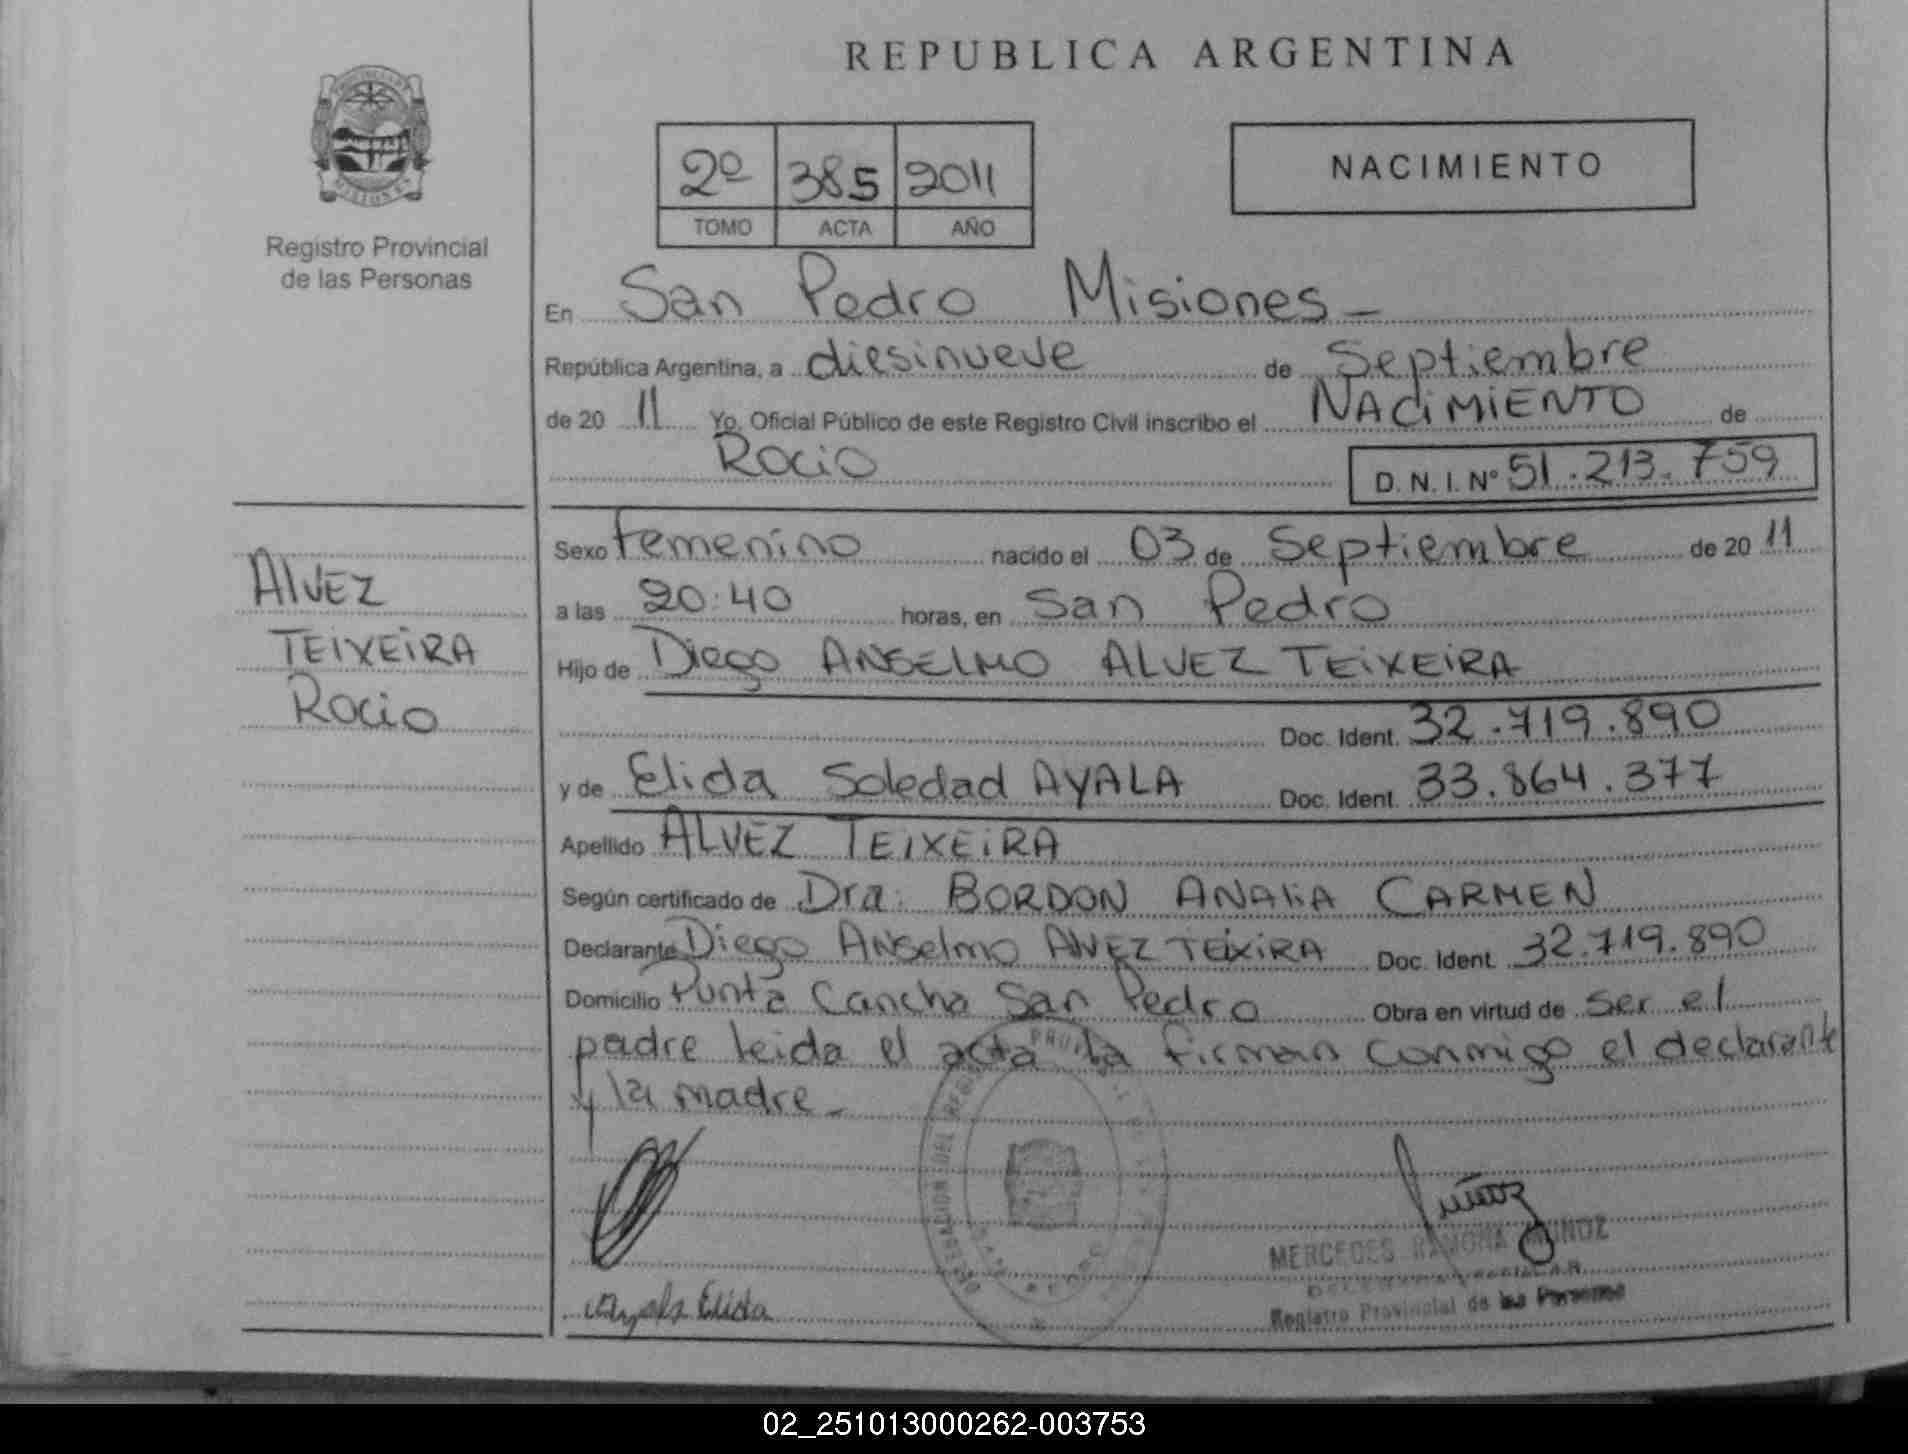 REPUBLICA ARGENTINA
PROVINCIA DE
MISIONES
Registro Provincial
de las Personas
2º 385 2011
TOMO ACTA AÑO
NACIMIENTO
En San Pedro Misiones_
República Argentina, a diesinueve de Septiembre
de 20 11 Yo, Oficial Público de este Registro Civil inscribo el NACIMIENTO de
Rocio D. N. I. Nº 51.213.759
ALVEZ
TEIXEIRA
Rocio
Sexo Femenino nacido el 03 de Septiembre de 20 11
a las 20:40 horas, en San Pedro
Hijo de Diego ANSELMO ALVEZ TEIXEIRA
Doc. Ident. 32.719.890
y de Elida Soledad AYALA Doc. Ident. 33.864.377
Apellido ALVEZ TEIXEIRA
Según certificado de Dra: BORDON ANALIA CARMEN
Declarante Diego Anselmo ALVEZ TEIXIRA Doc. Ident. 32.719.890
Domicilio Punta Cancha San Pedro Obra en virtud de ser el
padre leida el acta la firman conmigo el declarante
y la madre_
Muñoz
MERCEDES RAMONA MUÑOZ
Registro Provincial de las Personas
Ayala Elida
DEL
SAN PEDRO
02_251013000262-003753